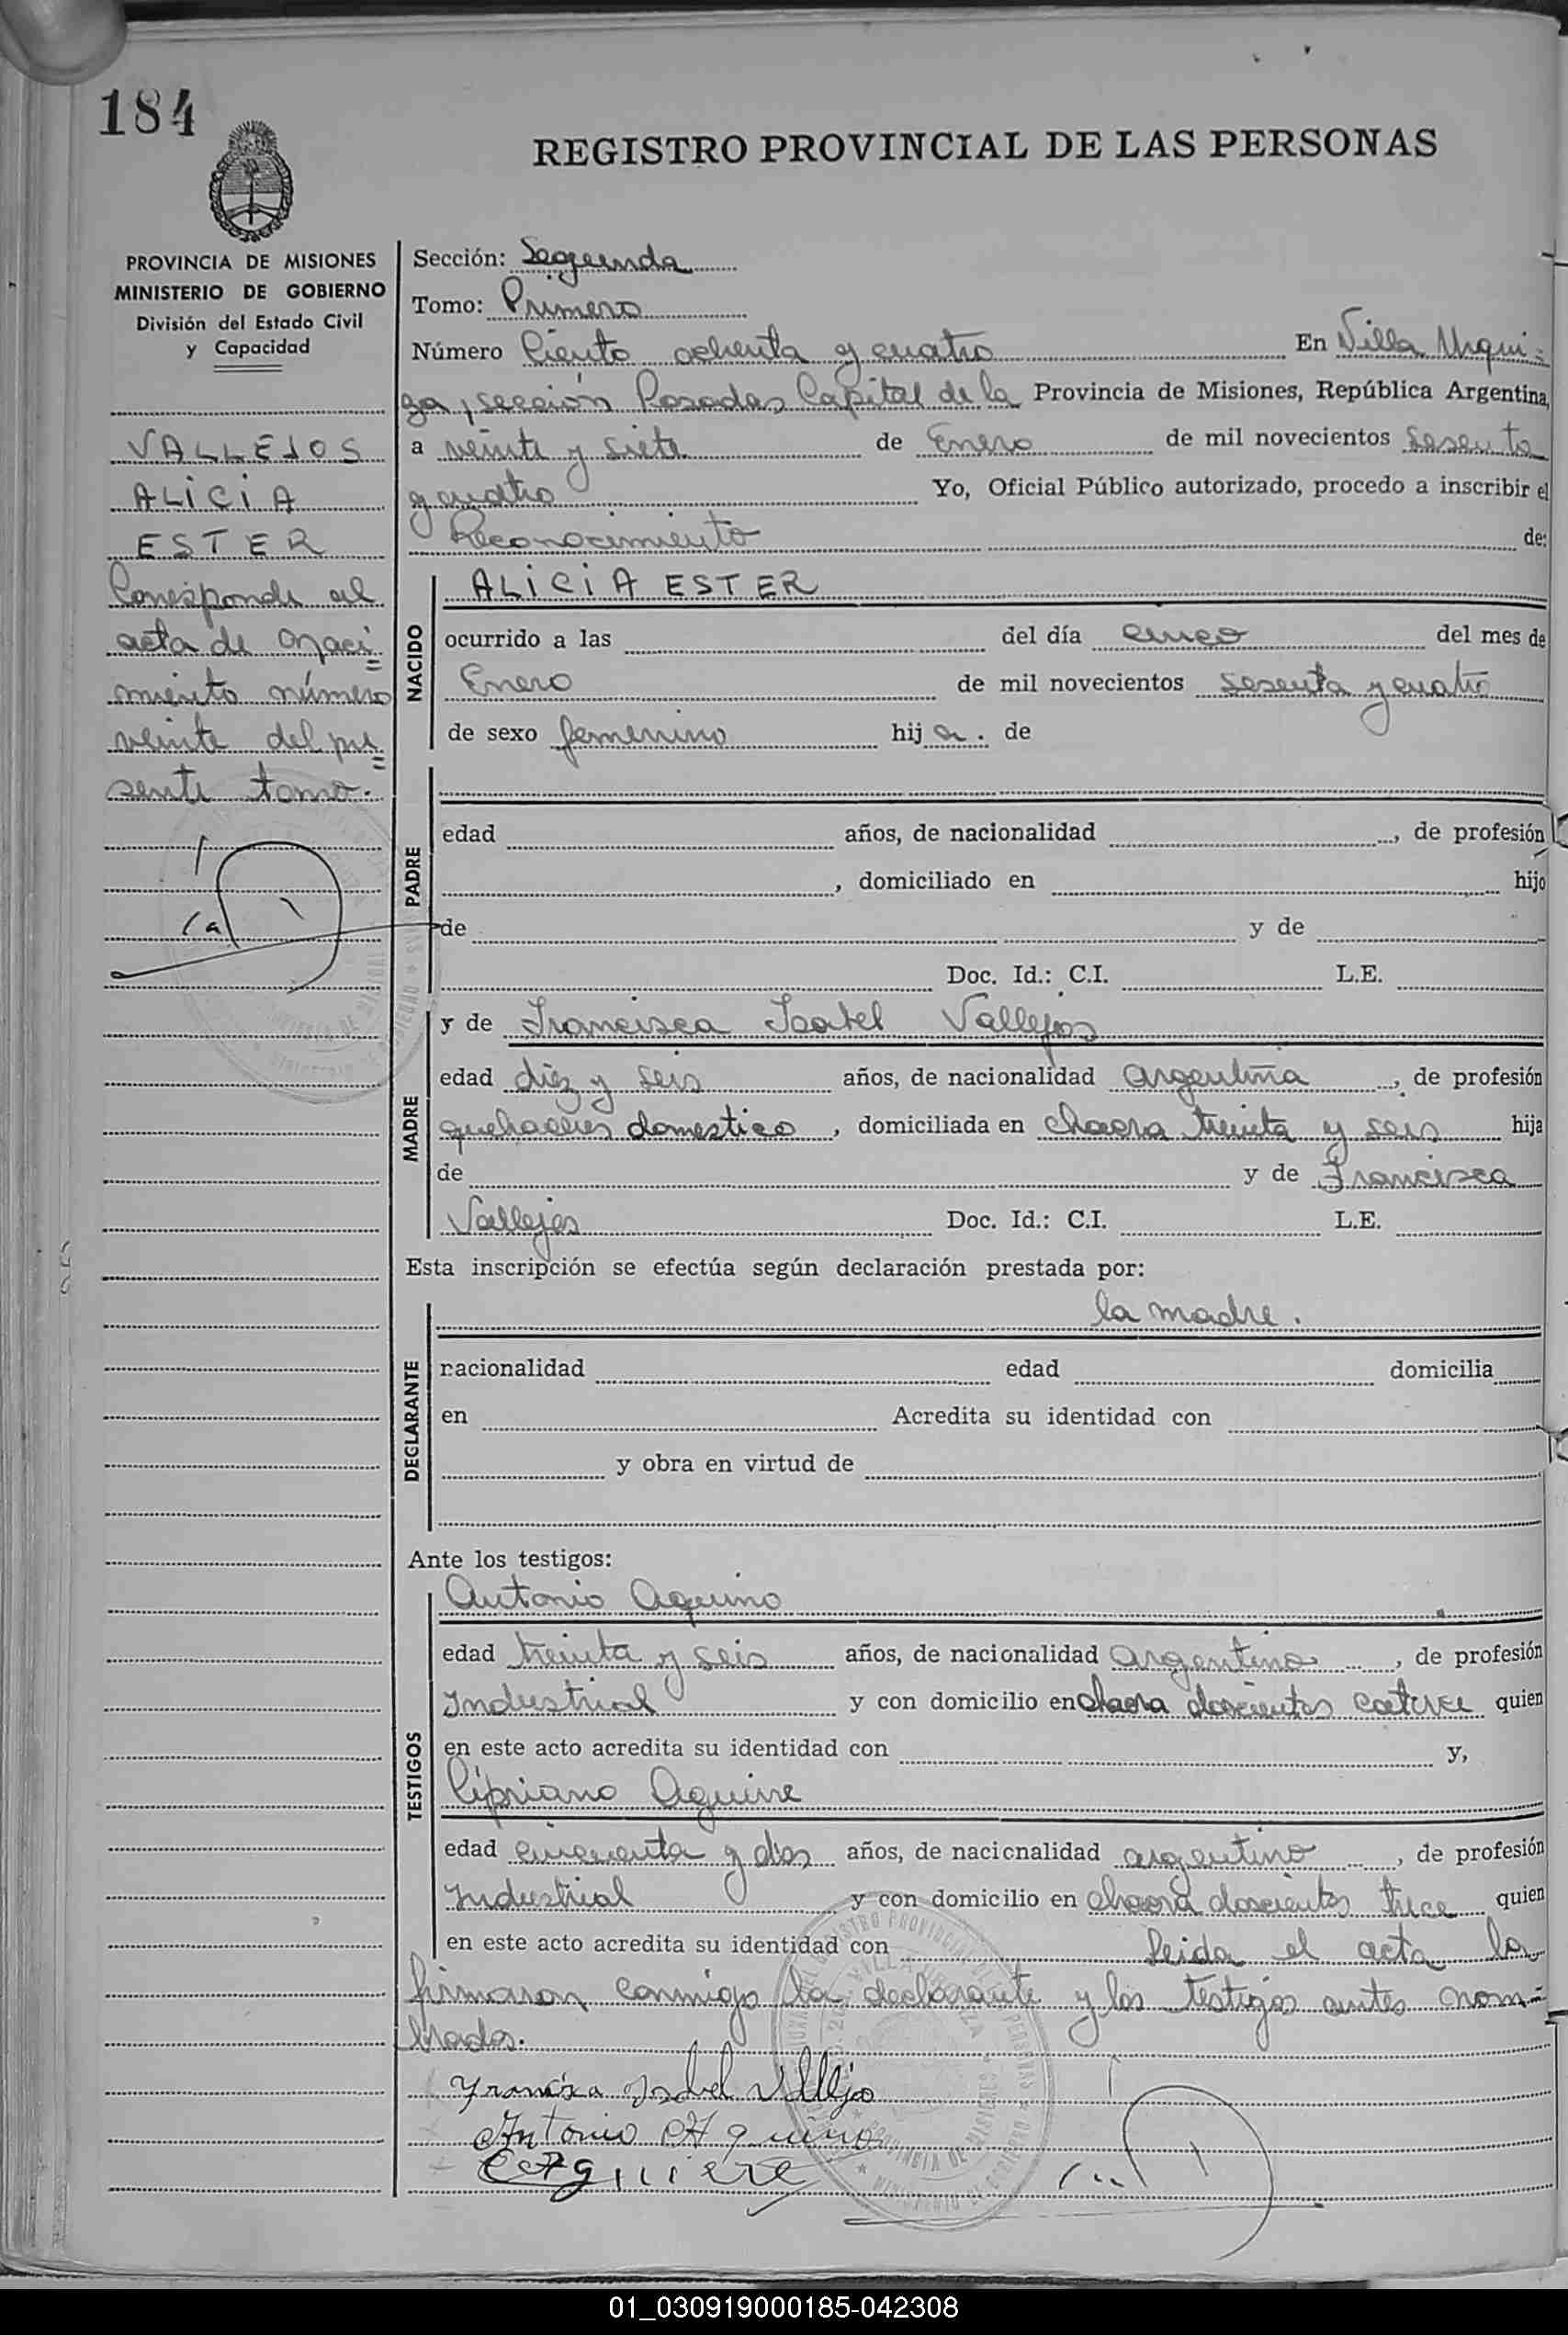 184
REGISTRO PROVINCIAL DE LAS PERSONAS
PROVINCIA DE MISIONES
MINISTERIO DE GOBIERNO
División del Estado Civil
y Capacidad
VALLEJOS
ALICIA
ESTER
Corresponde al
acta de naci=
miento número
veinte del pre=
sente tomo.
Sección: Segunda
Tomo: Primero
Número Ciento ochenta y cuatro En Villa Urqui=
za, sección Posadas Capital de la Provincia de Misiones, República Argentina,
a veinte y siete de Enero de mil novecientos sesenta
y cuatro Yo, Oficial Público autorizado, procedo a inscribir el
Reconocimiento de:
NACIDO
ALICIA ESTER
ocurrido a las del día cinco del mes de
Enero de mil novecientos sesenta y cuatro
de sexo femenino hija. de
PADRE
edad años, de nacionalidad , de profesión
, domiciliado en hijo
de y de
Doc. Id.: C.I. L.E.
MADRE
y de Francisca Isabel Vallejos
edad diez y seis años, de nacionalidad argentina , de profesión
quehaceres domestico , domiciliada en chacra treinta y seis hija
de y de Francisca
Vallejos Doc. Id.: C.I. L.E.
Esta inscripción se efectúa según declaración prestada por:
DECLARANTE
la madre.
nacionalidad edad domicilia
en Acredita su identidad con
y obra en virtud de
Ante los testigos:
TESTIGOS
Antonio Aquino
edad treinta y seis años, de nacionalidad argentino , de profesión
Industrial y con domicilio en chacra doscientos catorce quien
en este acto acredita su identidad con y,
Cipriano Aguirre
edad cincuenta y dos años, de nacionalidad argentino , de profesión
Industrial y con domicilio en chacra doscientos trece quien
en este acto acredita su identidad con Leida el acta la
firmaron conmigo la declarante y los testigos antes nom=
brados.
Francisca Isabel Vallejo
Antonio Aquino
C Aguirre
PROVINCIA DE MISIONES
MINISTERIO DE GOBIERNO
01_030919000185-042308